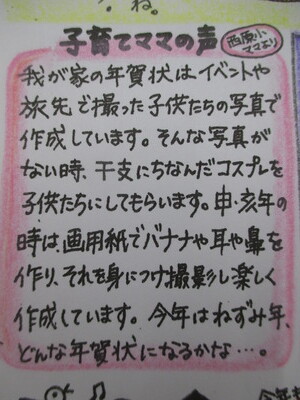 ね。
子育てママの声
西原小
ママより
我が家の年賀状は、イベントや
旅先で撮った子供たちの写真で
作成しています。そんな写真が
ない時、干支にちなんだコスプレを
子供たちにしてもらいます。申・亥年の
時は、画用紙でバナナや耳や鼻を
作り、それを身につけ撮影し楽しく
作成しています。今年はねずみ年、
どんな年賀状になるかな…。